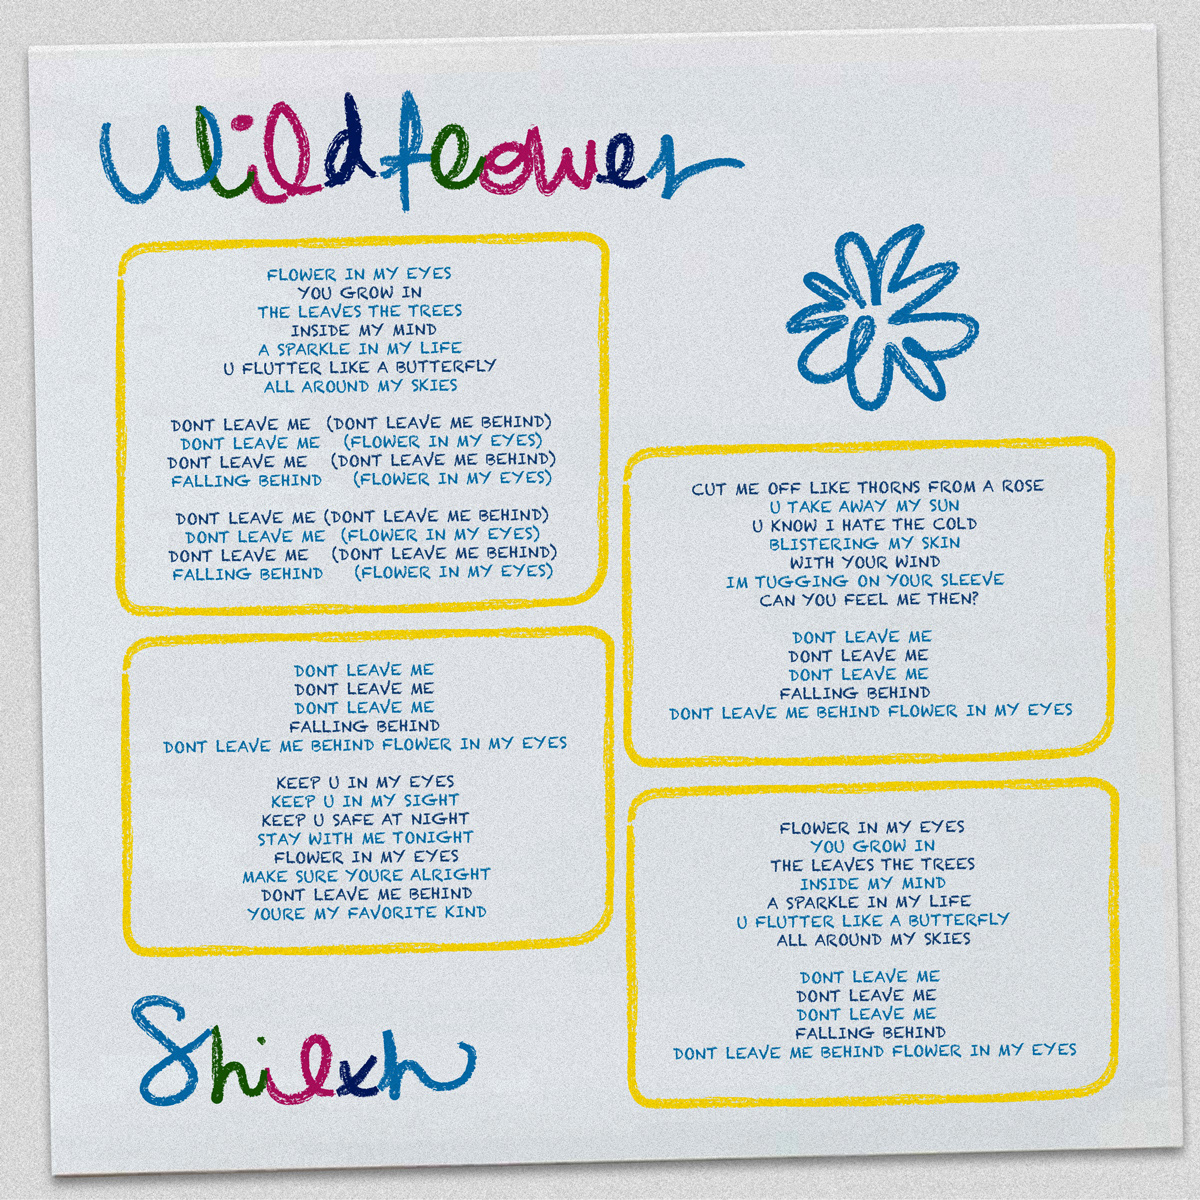 Wildflower
FLOWER IN MY EYES
YOU GROW IN
THE LEAVES THE TREES
INSIDE MY MIND
A SPARKLE IN MY LIFE
U FLUTTER LIKE A BUTTERFLY
ALL AROUND MY SKIES
DONT LEAVE ME (DONT LEAVE ME BEHIND)
DONT LEAVE ME (FLOWER IN MY EYES)
DONT LEAVE ME (DONT LEAVE ME BEHIND)
FALLING BEHIND (FLOWER IN MY EYES)
DONT LEAVE ME (DONT LEAVE ME BEHIND)
DONT LEAVE ME (FLOWER IN MY EYES)
DONT LEAVE ME (DONT LEAVE ME BEHIND)
FALLING BEHIND (FLOWER IN MY EYES)
DONT LEAVE ME
DONT LEAVE ME
DONT LEAVE ME
FALLING BEHIND
DONT LEAVE ME BEHIND FLOWER IN MY EYES
KEEP U IN MY EYES
KEEP U IN MY SIGHT
KEEP U SAFE AT NIGHT
STAY WITH ME TONIGHT
FLOWER IN MY EYES
MAKE SURE YOURE ALRIGHT
DONT LEAVE ME BEHIND
YOURE MY FAVORITE KIND
CUT ME OFF LIKE THORNS FROM A ROSE
U TAKE AWAY MY SUN
U KNOW I HATE THE COLD
BLISTERING MY SKIN
WITH YOUR WIND
IM TUGGING ON YOUR SLEEVE
CAN YOU FEEL ME THEN?
DONT LEAVE ME
DONT LEAVE ME
DONT LEAVE ME
FALLING BEHIND
DONT LEAVE ME BEHIND FLOWER IN MY EYES
FLOWER IN MY EYES
YOU GROW IN
THE LEAVES THE TREES
INSIDE MY MIND
A SPARKLE IN MY LIFE
U FLUTTER LIKE A BUTTERFLY
ALL AROUND MY SKIES
DONT LEAVE ME
DONT LEAVE ME
DONT LEAVE ME
FALLING BEHIND
DONT LEAVE ME BEHIND FLOWER IN MY EYES
Shilxh